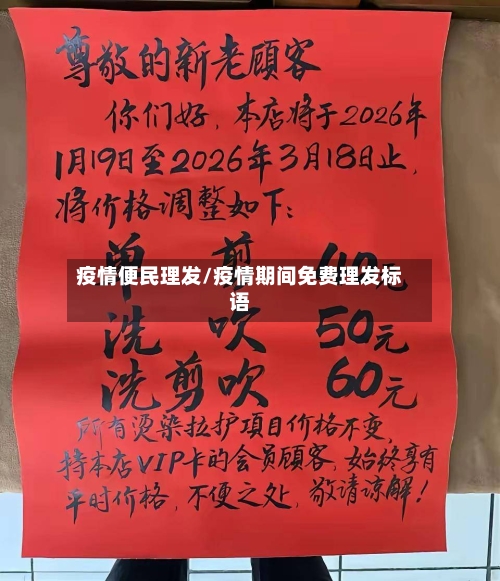 尊敬的新老顧客
你们好,本店将于2026年
1月19日至2026年3月18日止,
将价格调整如下:
单 剪 40元
疫情便民理发/疫情期间免费理发标
语
洗 吹 50元
洗剪吹 60元
所有烫染拉护项目价格不变,
持本店VIP卡的会员顧客,始终享有
平时价格,不便之处,敬请谅解!